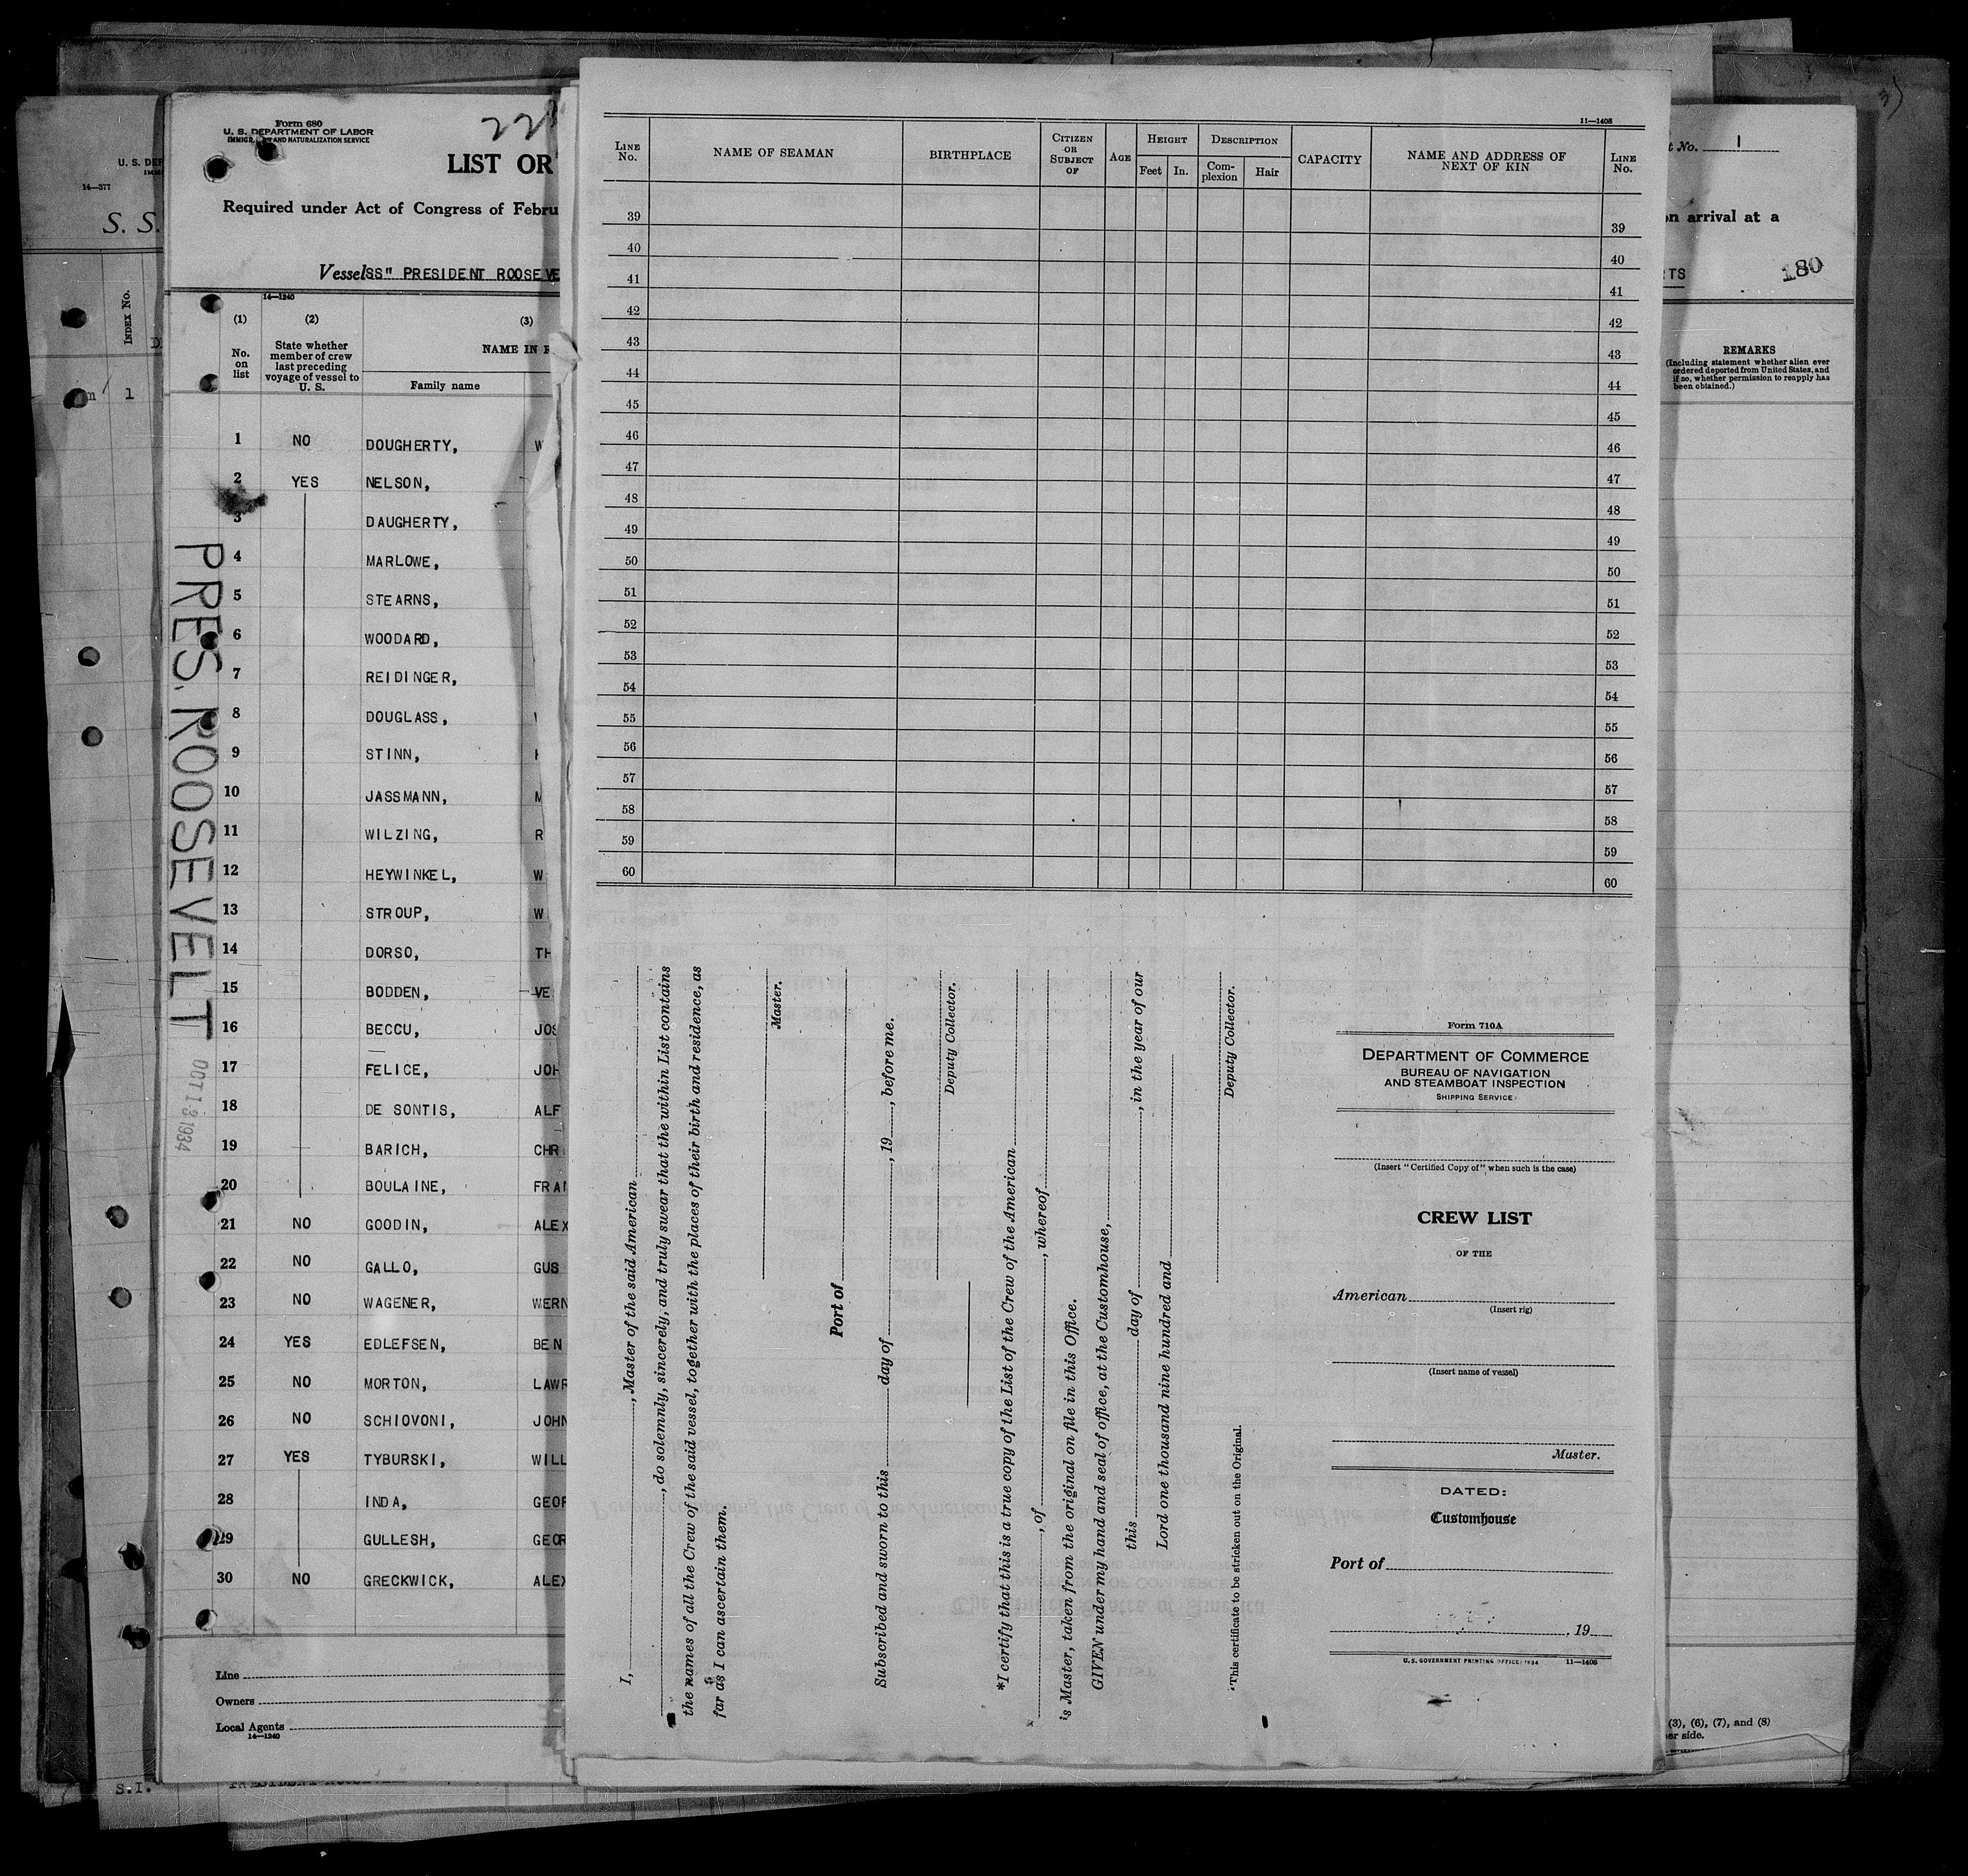 Form 680
U. S. DEPARTMENT OF LABOR
AND NATURALIZATION SERVICE
LIST OR
Required under Act of Congress of Febru
Vessel SS" PRESIDENT ROOSEVE
14—1240
(1) (2) (3)
No. on list
State whether member of crew last preceding voyage of vessel to U. S.
NAME IN F
Family name
1 NO DOUGHERTY, W
2 YES NELSON,
3 DAUGHERTY,
4 MARLOWE,
5 STEARNS,
6 WOODARD,
7 REIDINGER,
8 DOUGLASS,
9 STINN,
10 JASSMANN, M
11 WILZING, R
12 HEYWINKEL, W
13 STROUP, W
14 DORSO, TH
15 BODDEN, VE
16 BECCU, JOS
17 FELICE, JOH
18 DE SONTIS, ALF
19 BARICH, CHR
20 BOULAINE, FRA
21 NO GOODIN, ALEX
22 NO GALLO, GUS
23 NO WAGENER, WERN
24 YES EDLEFSEN, BEN
25 NO MORTON, LAWR
26 NO SCHIOVONI, JOHN
27 YES TYBURSKI, WILL
28 INDA, GEOR
29 GULLESH, GEOR
30 NO GRECKWICK, ALEX
Line
Owners
Local Agents
14—1240
PRES. ROOSEVELT
OCT 13 1934
U. S. DEP
14—377
S. S.
INDEX No.
1
S.I.
11—1408
LINE No.
NAME OF SEAMAN
BIRTHPLACE
CITIZEN OR SUBJECT OF
AGE
HEIGHT
Feet In.
DESCRIPTION
Com-plexion
Hair
CAPACITY
NAME AND ADDRESS OF NEXT OF KIN
LINE No.
39 39
40 40
41 41
42 42
43 43
44 44
45 45
46 46
47 47
48 48
49 49
50 50
51 51
52 52
53 53
54 54
55 55
56 56
57 57
58 58
59 59
60 60
I, , Master of the said American
, do solemnly, sincerely, and truly swear that the within List contains
the names of all the Crew of the said vessel, together with the places of their birth and residence, as
far as I can ascertain them.
Master.
Port of
Subscribed and sworn to this day of , 19 , before me.
Deputy Collector.
*I certify that this is a true copy of the List of the Crew of the American
, of , whereof
is Master, taken from the original on file in this Office.
GIVEN under my hand and seal of office, at the Customhouse,
this day of , in the year of our
Lord one thousand nine hundred and
Deputy Collector.
*This certificate to be stricken out on the Original.
Form 710A
DEPARTMENT OF COMMERCE
BUREAU OF NAVIGATION
AND STEAMBOAT INSPECTION
SHIPPING SERVICE
(Insert "Certified Copy of" when such is the case)
CREW LIST
OF THE
American
(Insert rig)
(Insert name of vessel)
Master.
DATED:
Customhouse
Port of
, 19
U. S. GOVERNMENT PRINTING OFFICE: 1934 11—1408
No. 1
on arrival at a
TS
180
REMARKS
(Including statement whether alien ever ordered deported from United States, and if so, whether permission to reapply has been obtained.)
(3), (6), (7), and (8)
er side.